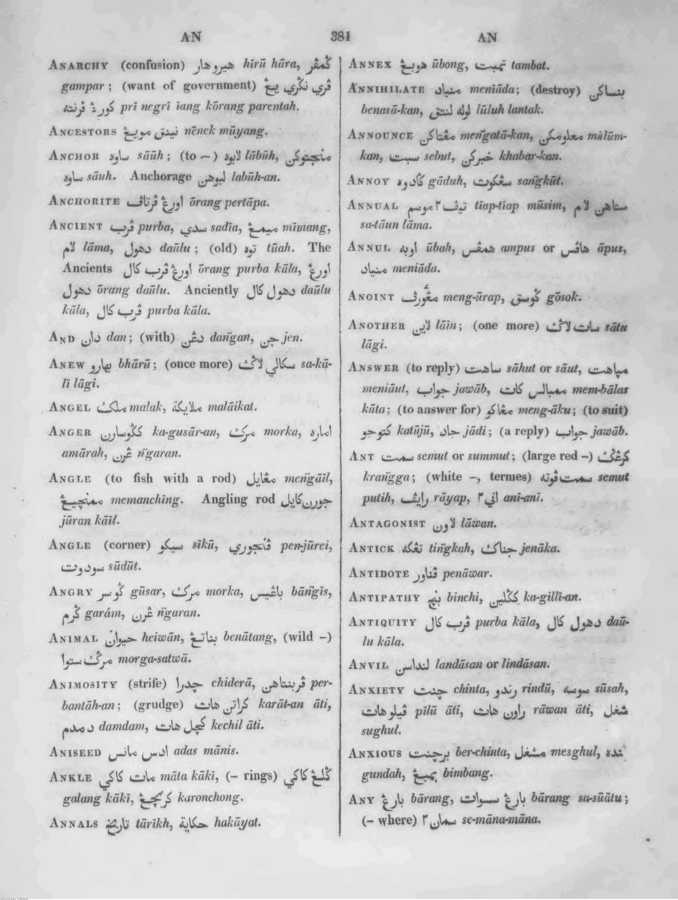 AN 381 AN
ANARCHY (confusion) هيرو هار hirū hāra, گمڤر
gampar; (want of government) ڤري نگري يڠ
كورڠ ڤرنته prī negrī iang kōrang parentah.
ANCESTORS نينق مويڠ nēnek mūyang.
ANCHOR ساوه sāūh; (to ~) لابوه lābūh, منجتوكن
ساوه sāuh. Anchorage لبوهن labūh-an.
ANCHORITE اورڠ ڤرتاڤ ōrang pertāpa.
ANCIENT ڤرب purba, سدي sadīa, ميمڠ mīmang,
لام lāma, دهول daūlu; (old) توه tūah. The
Ancients اورڠ ڤرب كال ōrang purba kāla, اورڠ
دهول ōrang daūlu. Anciently دهول كال daūlu
kāla, ڤرب كال purba kāla.
AND دان dan; (with) دڠن dañgan, جن jen.
ANEW بهارو bhārū; (once more) سكالي لاݢ sa-kā-
lī lāgi.
ANGEL ملك malak, ملايكة malāikat.
ANGER ككوسارن ka-gusār-an, مرك morka, اماره
amārah, ڠرن ñgaran.
ANGLE (to fish with a rod) مڠايل meñgāil,
ممنچيڠ memanching. Angling rod جورن كايل
jūran kāil.
ANGLE (corner) سيكو sīkū, ڤنجوري pen-jūrei,
سودوت sūdūt.
ANGRY گوسر gūsar, مرك morka, باڠيس bāñgis,
گرم garām, ڠرن ñgaran.
ANIMAL حيوان heiwān, بناتڠ benātang, (wild –)
مرك ستوا morga-satwā.
ANIMOSITY (strife) چدرا chiderā, ڤربنتاهن per-
bantāh-an; (grudge) كراتن هات karāt-an āti,
دمدم damdam, كچل هات kechil āti.
ANISEED ادس مانس adas mānis.
ANKLE مات كاكي māta kākī, (– rings) گلڠ كاكي
galang kākī, كرنچڠ karonchong.
ANNALS تاريخ tārīkh, حكاية hakāyat.
ANNEX هوبڠ ūbong, تمبت tambat.
ANNIHILATE منياد meniāda; (destroy) بنساكن
benasā-kan, لوله لنتق lūluh lantak.
ANNOUNCE مڠتاكن meñgatā-kan, معلومكن mālūm-
kan, سبت sebut, خبركن khabar-kan.
ANNOY كادوه gāduh, سڠكوت sañgkūt.
ANNUAL تيڤ٢ موسم tīap-tīap mūsim, ستاهن لام
sa-tāun lāma.
ANNUL اوبه ūbah, همڤس ampus or هاڤس āpus,
منياد meniāda.
ANOINT مڠورڤ meng-ūrap, گوسق gōsok.
ANOTHER لاين lāin; (one more) سات لاݢ sātu
lāgi.
ANSWER (to reply) ساهت sāhut or sāut, مياهت
meniāut, جواب jawāb, ممبالس كات mem-bālas
kāta; (to answer for) مڠاكو meng-āku; (to suit)
كتوجو katūjū, جاد jādi; (a reply) جواب jawāb.
ANT سمت semut or summut; (large red –) كرڠݢ
krañgga; (white –, termes) سمت ڤوته semut
putih, رايڤ rāyap, اني٢ anī-anī.
ANTAGONIST لاون lāwan.
ANTICK تڠكه tiñgkah, جناك jenāka.
ANTIDOTE ڤناور penāwar.
ANTIPATHY بنچ binchi, ككلين ka-gillī-an.
ANTIQUITY ڤرب كال purba kāla, دهول كال daū-
lu kāla.
ANVIL لنداسن landāsan or lindāsan.
ANXIETY چنت chinta, رندو rindū, سوسه sūsah,
ڤيلو هات pīlū āti, راون هات rāwan āti, شغل
sughul.
ANXIOUS برچنت ber-chinta, مشغل mesghul, گنده
gundah, بمبڠ bimbang.
ANY بارڠ bārang, بارڠ سسوات bārang sa-sūātu;
(– where) سمان٢ se-māna-māna.